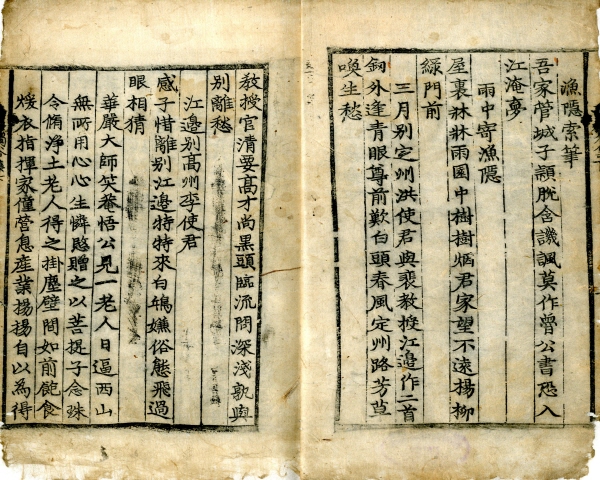 漁隱索筆
吾家管城子穎脫含譏諷莫作曾公書恐入
江淹夢
雨中寄漁隱
屋裏牀牀雨園中樹樹烟君家望不遠楊柳
綠門前
三月別定州洪使君與裴教授江邊作二首
釰外逢青眼尊前歎白頭春風定州路芳草
喚生愁
教授官淸要高才尚黑頭臨流問深淺孰與
別離愁
江邊別高州李使君
感子惜離別江邊特特來白鴎嫌俗態飛過
眼相猜
華嚴大師笑菴悟公見一老人日逼西山
無所用心心生憐愍贈之以菩提子念珠
令脩淨土老人得之掛塵壁間如前飽食
煖衣指揮家僮營息産業揚揚自以為得